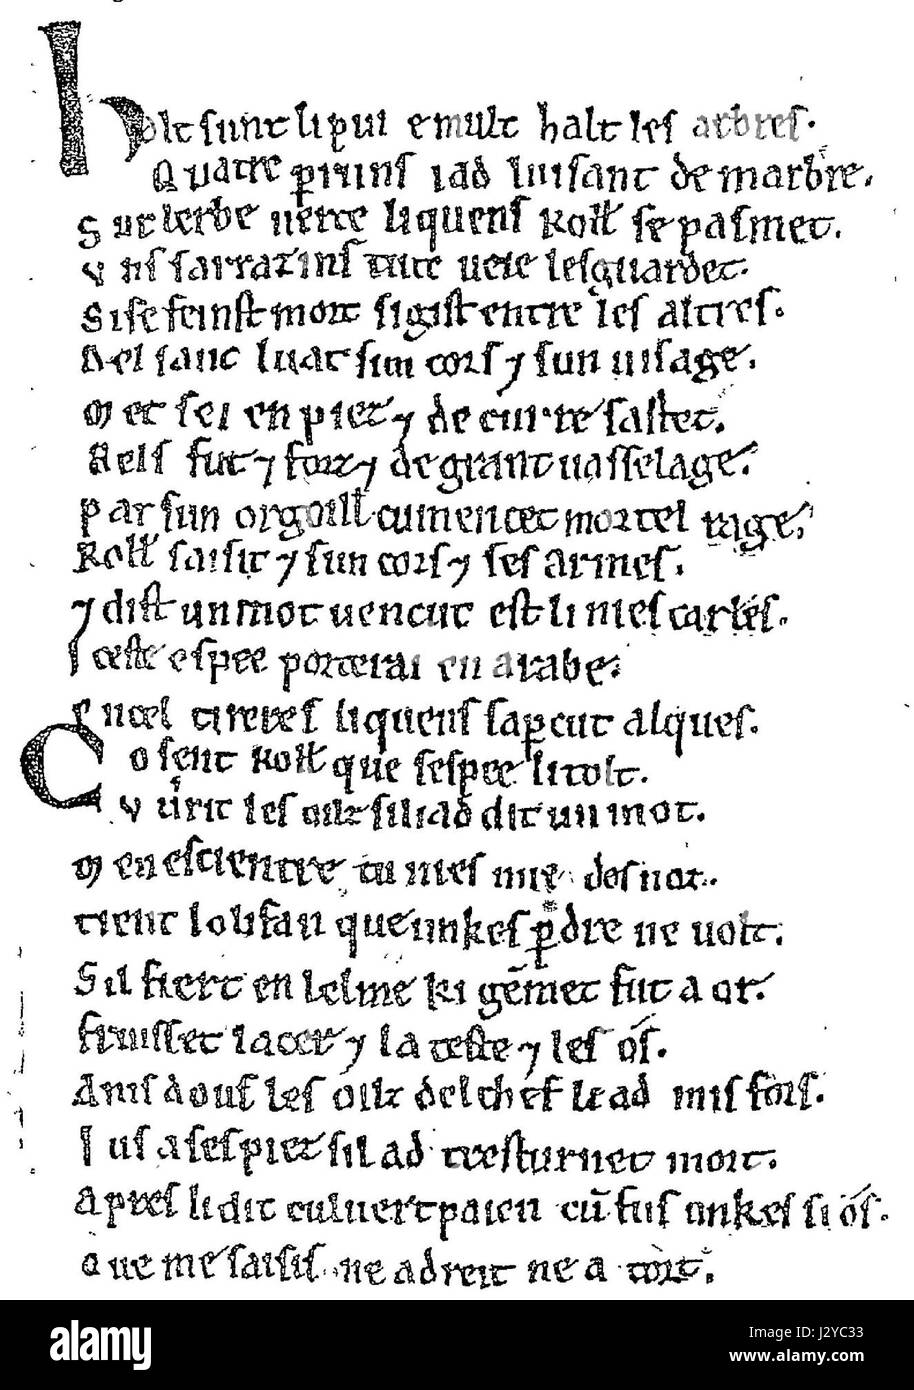 halt sunt li pui e mult halt les arbres.
Quatre pruns i ad luisant de marbre.
Sur lerbe verte li quens Roll se pasmet.
Uns sarrazins tute veie lesguardet.
Si se feinst mort si gist entre les altres.
Del sanc luat sun cors ⁊ sun visage.
Met sei en piez ⁊ de curre sastet.
Bels fut ⁊ forz ⁊ de grant vasselage.
Par sun orgoill cumencet mortel rage.
Roll saisit ⁊ sun cors ⁊ ses armes.
⁊ dist un mot vencut est li nies carles.
Iceste espee porterai en arabe.
En cel tireres li quens sapercut alques.
Co sent Roll que sespee li tolt.
Uuvrit les oilz si li ad dit un mot.
Men escientre tu nies mie des noz.
Tient lolifan que unkes perdre ne volt.
Sil fiert en lelme ki gemmet fut a or.
Fruisset lacer ⁊ la teste ⁊ les os.
Amsdous les oilz del chef li ad mis fors.
Jus a ses piez sil ad tresturnet mort.
Apres li dit culvert paien cum fus unkes si os.
Que me saisis ne a dreit ne a tort.
alamy stock photo
J2YC33
www.alamy.com